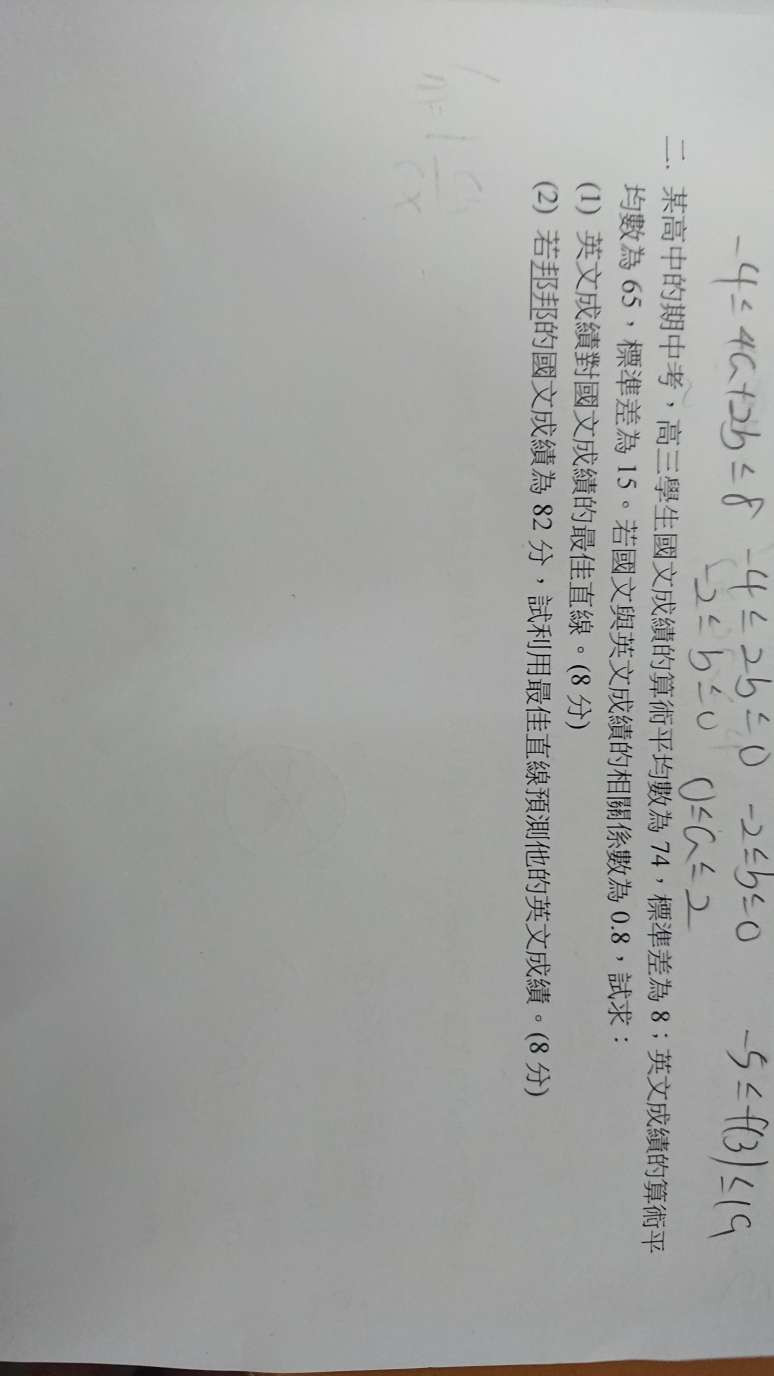 -4≤4a+2b≤8 -4≤2b≤0 -2≤b≤0 -5≤f(3)≤19
-2≤b≤0 0≤a≤2
二. 某高中的期中考，高三學生國文成績的算術平均數為 74，標準差為 8；英文成績的算術平
均數為 65，標準差為 15。若國文與英文成績的相關係數為 0.8，試求：
(1) 英文成績對國文成績的最佳直線。(8 分)
(2) 若邦邦的國文成績為 82 分，試利用最佳直線預測他的英文成績。(8 分)